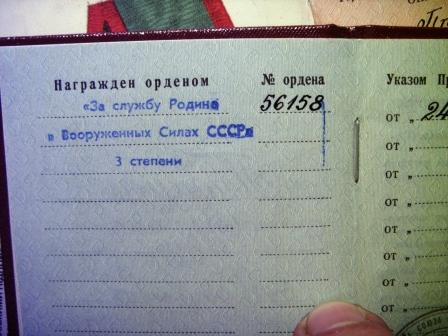 Награжден орденом № ордена Указом Пр
«За службу Родине 56158 от „24
в Вооруженных Силах СССР» от „
3 степени от „
от „
от „
от „
от „
от „